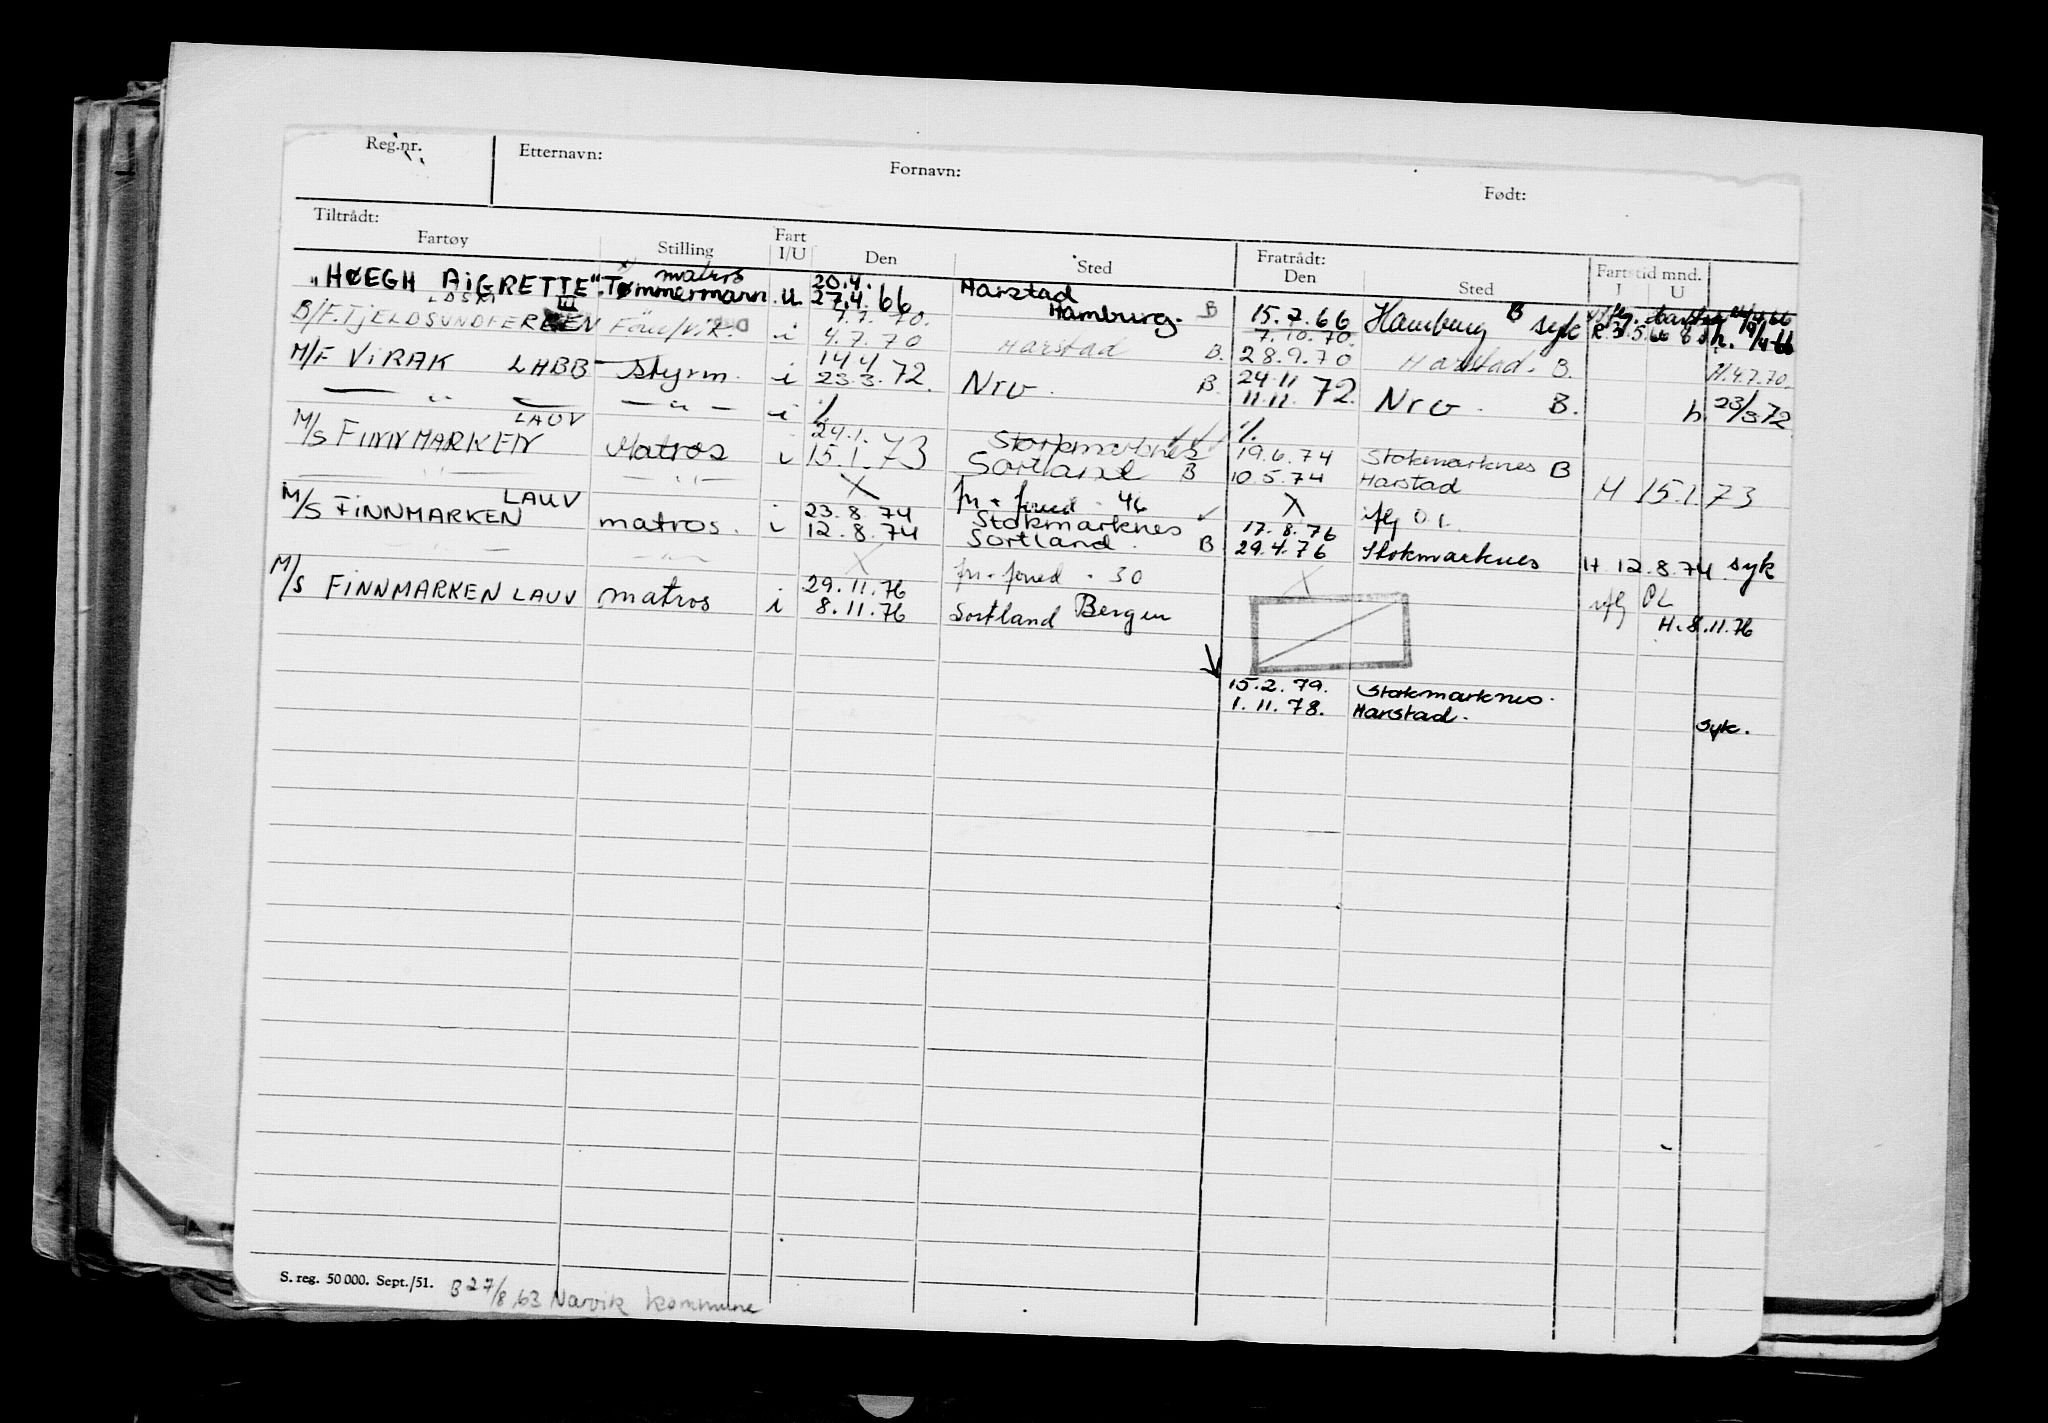 Reg.nr. Etternavn: Fornavn: Født:
Tiltrådt: Fratrådt:
Fartøy Stilling Fart I/U Den Sted Den Sted Fartstid mnd. I U
matros 20.4. Harstad
"HØEGH AIGRETTE" Tømmermann u 27.4.66 Hamburg. B 15.7.66 Hamburg B syk
7.7.70. 7.10.70.
B/F. TJELDSUNDFERGEN III i 4.7.70 Harstad B. 28.9.70 Harstad. B. H.4.7.70.
14.4 24.11
M/F VIRAK LHBB Styrm. i 23.3.72. Nrv. B. 11.11.72. Nrv. B. h. 23/3 72
— " — — " — i % %
LAUV 24.1. Stokmarknes 19.6.74 Stokmarknes B
M/S FINNMARKEN Matros i 15.1.73 Sortland B 10.5.74 Harstad H 15.1.73
— " — — " — X 46 X
LAUV 23.8.74 Stokmarknes 17.8.76
M/S FINNMARKEN matros. i 12.8.74 Sortland. B 29.4.76 Stokmarknes H 12.8.74 syk
— " — — " — X 30 X
29.11.76 Bergen
M/S FINNMARKEN LAUV matros i 8.11.76 Sortland H. 8.11.76
15.2.79. Stokmarknes.
1.11.78. Harstad. syk.
S. reg. 50 000. Sept./51. B 27/8 63 Narvik kommune